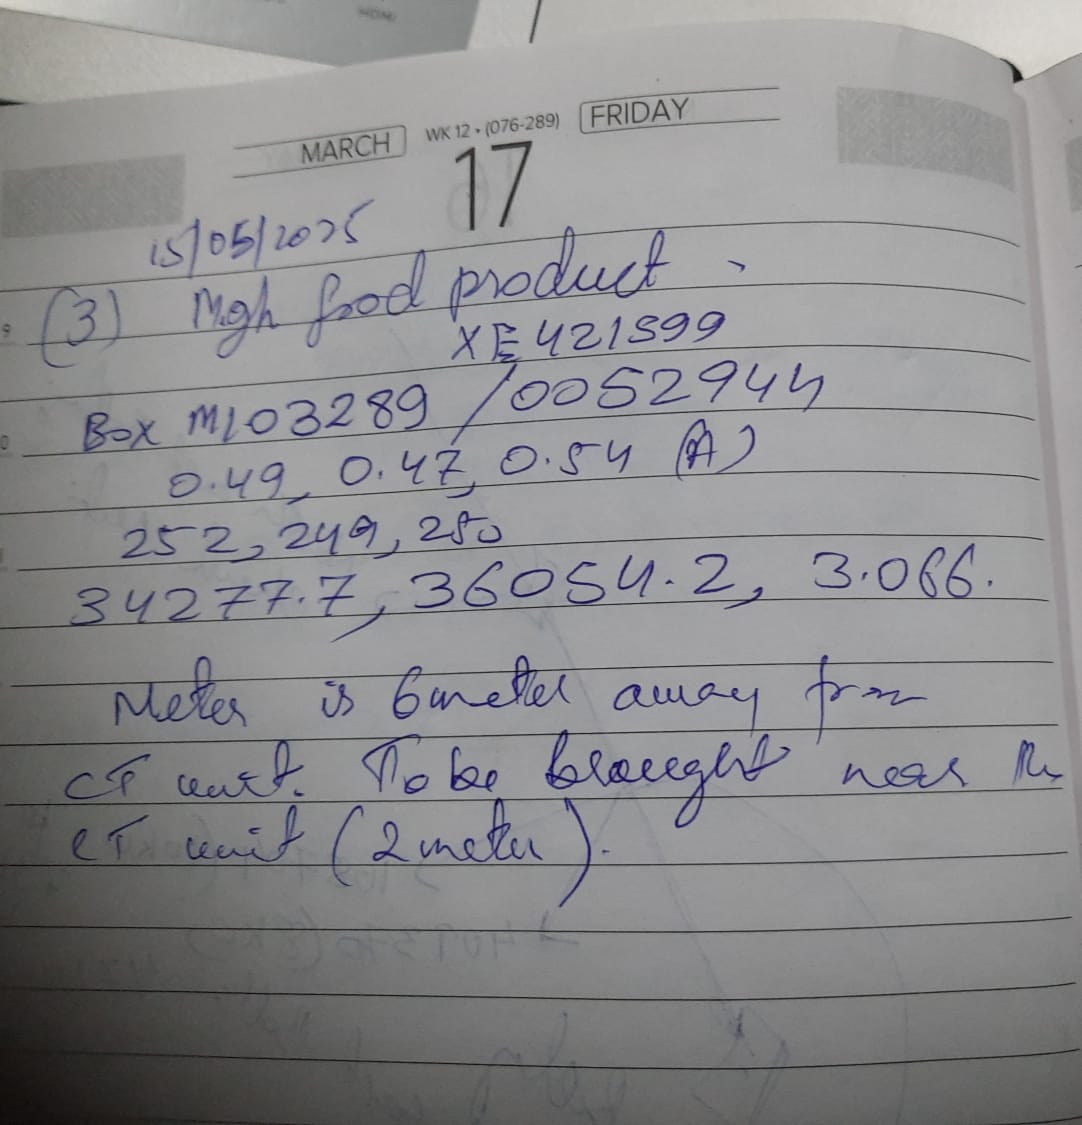 MARCH WK 12 • (076-289) FRIDAY
17
15/05/2025
(3) Mgh food product.
XE421599
Box M103289 / 0052944
0.49, 0.47, 0.54 (A)
252, 249, 250
34277.7, 36054.2, 3.066.
Meter is 6 meter away from
CT unit. To be brought near the
CT unit (2 meter).